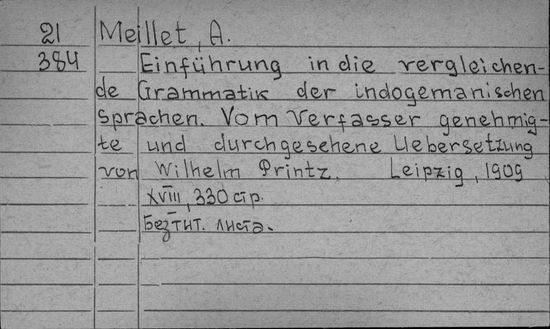 21 Meillet, A.
384 Einführung in die vergleichen-
de Grammatik der indogemanischen
sprachen. Vom Verfasser genehmig-
te und durchgesehene Uebersetzung
von Wilhelm Printz. Leipzig, 1909
XVIII, 330 стр.
Без тит. листа.